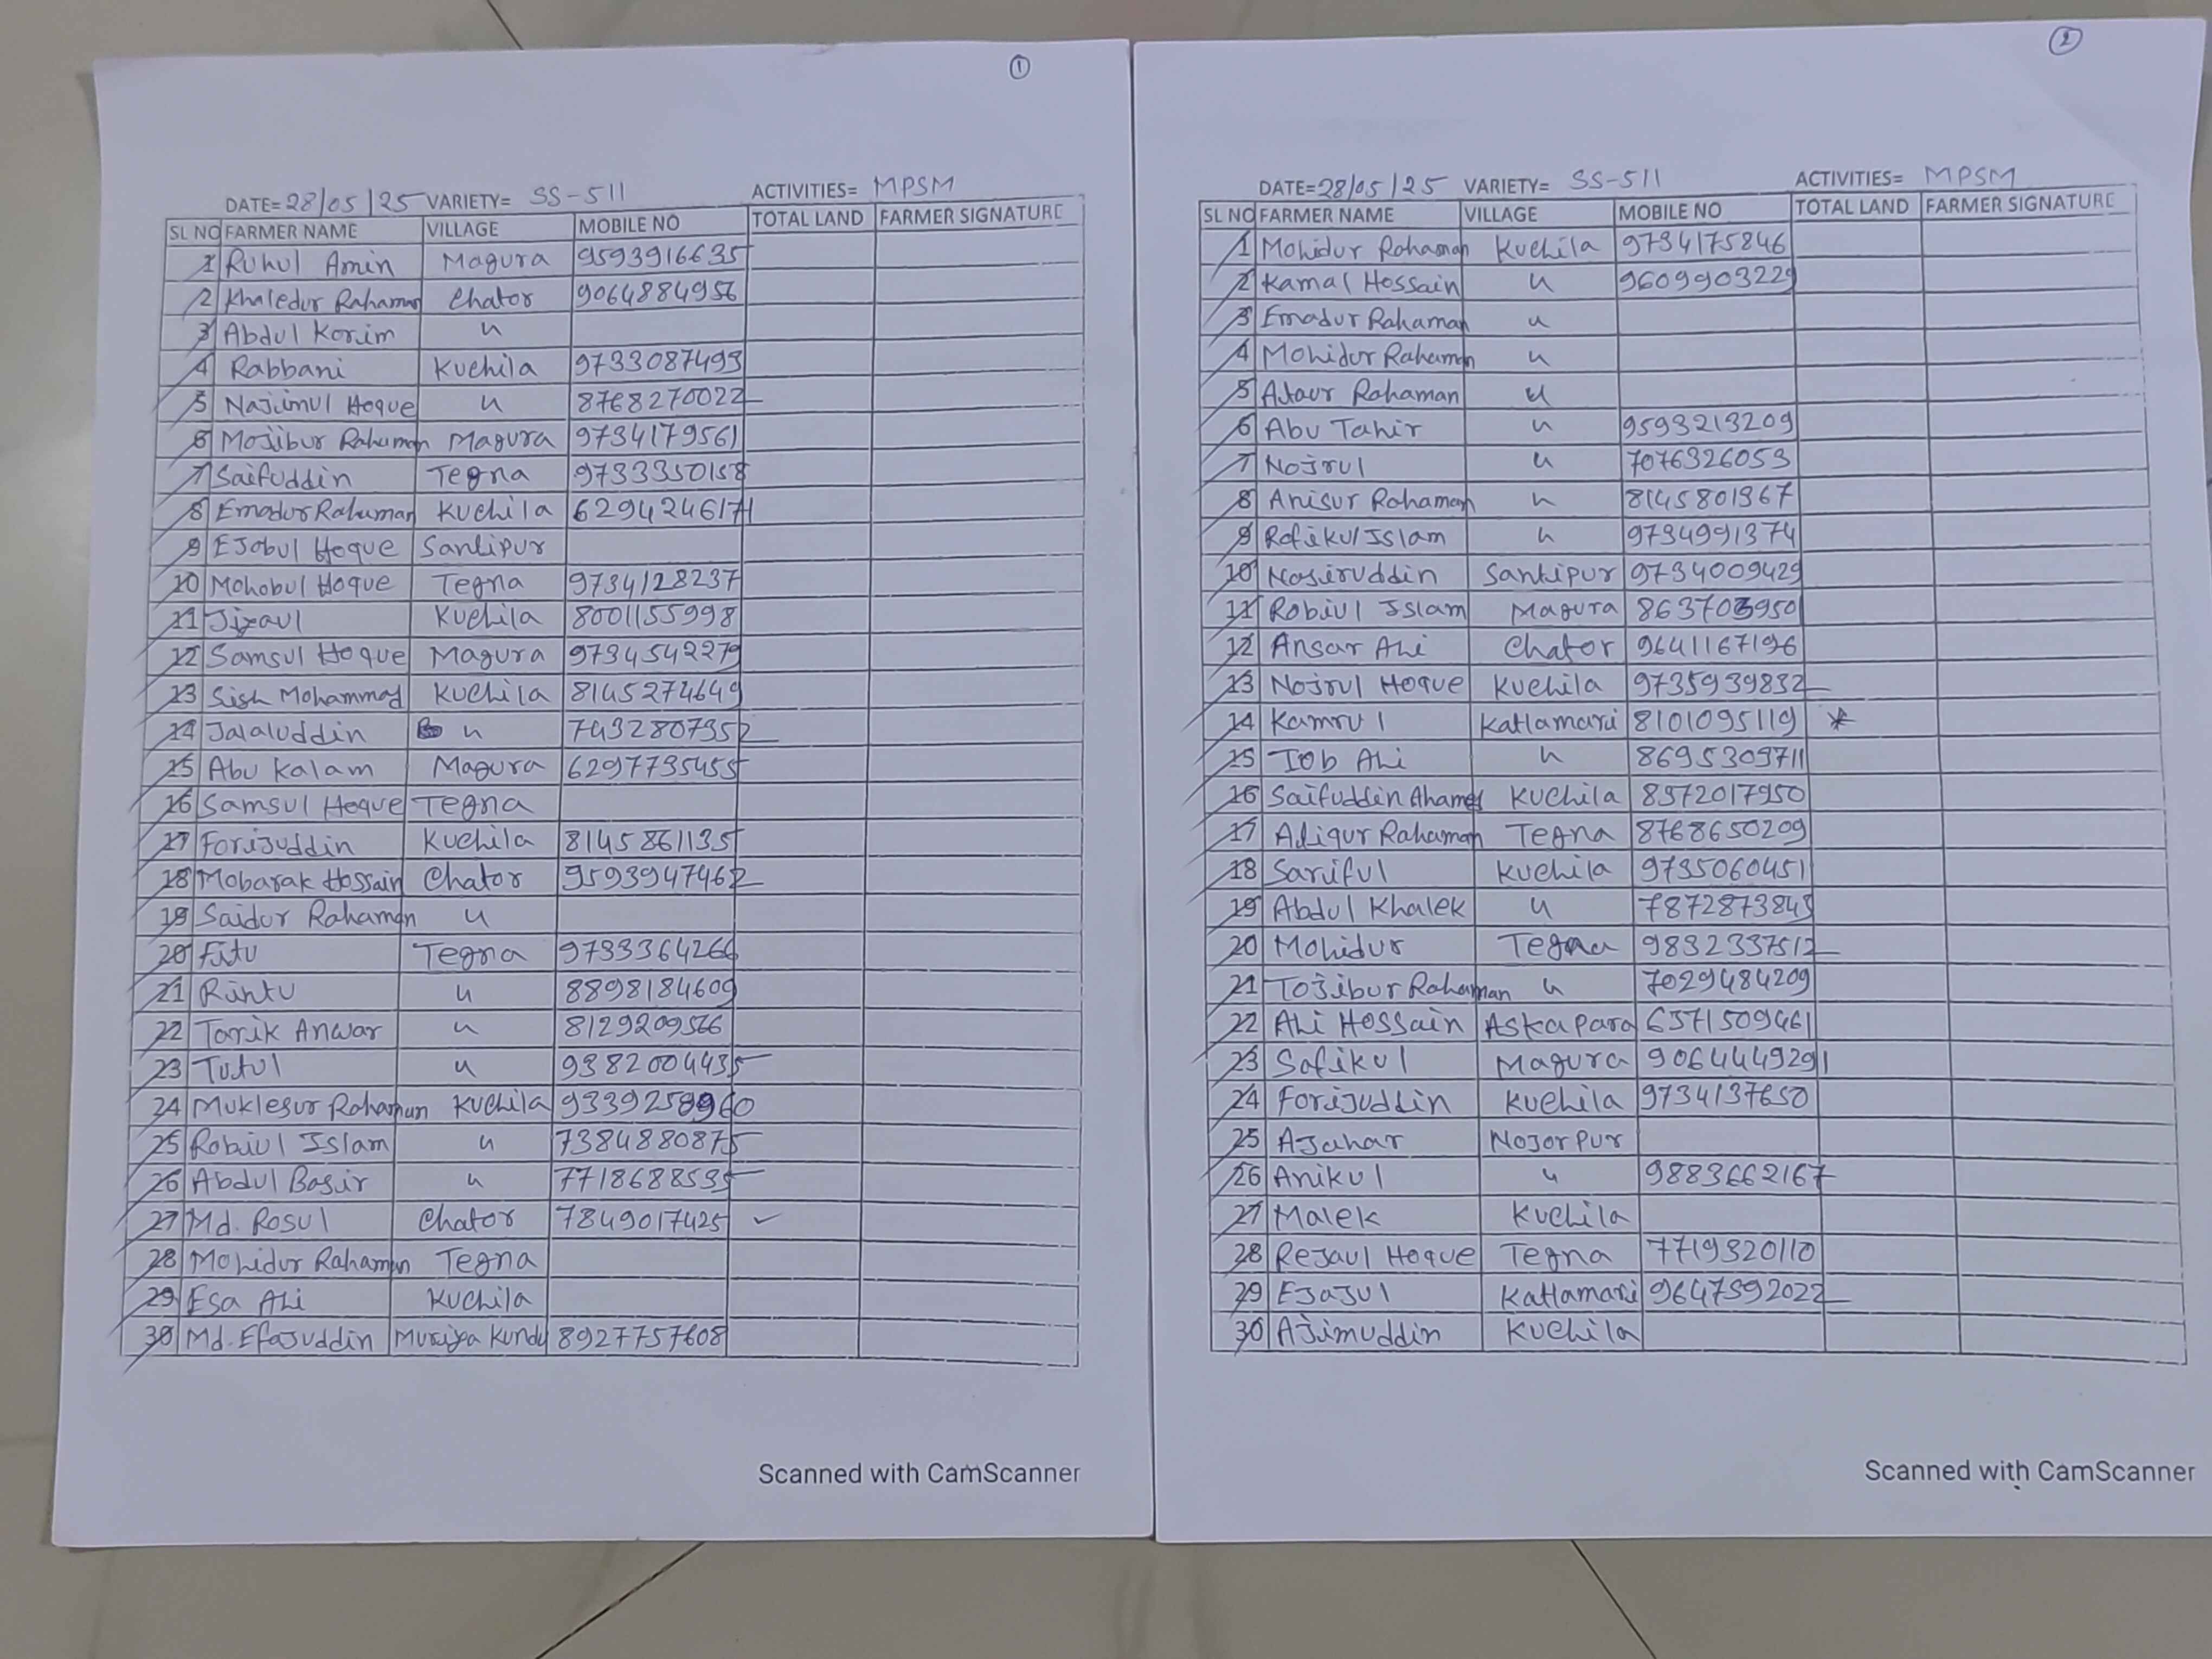 1
DATE= 28/05/25 VARIETY= SS-511 ACTIVITIES= MPSM
SL NO FARMER NAME VILLAGE MOBILE NO TOTAL LAND FARMER SIGNATURE
1 Ruhul Amin Magura 9593916635
2 Khaledur Rahaman Chator 9064884956
3 Abdul Korim u
4 Rabbani Kuchila 9733087493
5 Najimul Hoque u 8768270022
6 Mojibur Rahaman Magura 9734179561
7 Saifuddin Tegna 9733350158
8 Emadur Rahaman Kuchila 6294246171
9 EJobul Hoque Santipur
10 Mohobul Hoque Tegna 9734128237
11 Jizaul Kuchila 8001155998
12 Samsul Hoque Magura 9734542279
13 Sish Mohammad Kuchila 8145274649
14 Jalaluddin u 7432807352
15 Abu Kalam Magura 6297735455
16 Samsul Hoque Tegna
17 Forijuddin Kuchila 8145861135
18 Mobarak Hossain Chator 9593947462
19 Saidur Rahaman u
20 Fitu Tegna 9733364266
21 Rintu u 8898184609
22 Tarik Anwar u 8129209566
23 Tutul u 9382004435
24 Muklesur Rahaman Kuchila 9339258960
25 Robiul Islam u 7384880875
26 Abdul Basir u 7718688535
27 Md. Rosul Chator 7849017425 ✓
28 Mohidur Rahaman Tegna
29 Esa Ali Kuchila
30 Md. Efajuddin Muriya Kundu 8927757608
Scanned with CamScanner
2
DATE= 28/05/25 VARIETY= SS-511 ACTIVITIES= MPSM
SL NO FARMER NAME VILLAGE MOBILE NO TOTAL LAND FARMER SIGNATURE
1 Mohidur Rahaman Kuchila 9734175846
2 Kamal Hossain u 9609903229
3 Emadur Rahaman u
4 Mohidur Rahaman u
5 Ataur Rahaman u
6 Abu Tahir u 9593213209
7 Nojrul u 7076326053
8 Anisur Rahaman u 8145801367
9 Rofikul Islam u 9734991374
10 Nasiruddin Santipur 9734009429
11 Robiul Islam Magura 8637039501
12 Ansar Ali Chator 9641167196
13 Nojrul Hoque Kuchila 9735939832
14 Kamrul Katlamari 8101095119 *
15 Iob Ali u 8695309711
16 Saifuddin Ahamed Kuchila 8372017950
17 Atiqur Rahaman Tegna 8768650209
18 Sariful Kuchila 9735060451
19 Abdul Khalek u 7872873843
20 Mohidur Tegna 9832337512
21 Tojibur Rahaman u 7029484209
22 Ali Hossain Askapara 6371509461
23 Safikul Magura 9064449291
24 Forijuddin Kuchila 9734137650
25 AJahar NoJorpur
26 Anikul u 9883662167
27 Malek Kuchila
28 ReJaul Hoque Tegna 7719320110
29 EJaJul Katlamari 9647592022
30 Ajimuddin Kuchila
Scanned with CamScanner